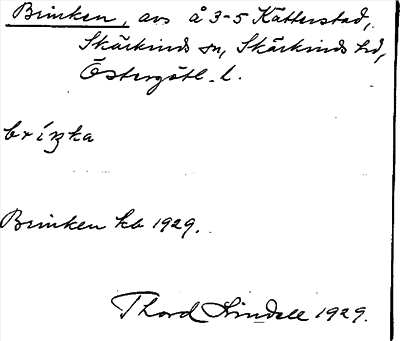 Brinken, avs å 3-5 Kätterstad,
Skärkinds sn, Skärkinds hd,
Östergötl. l.
briŋka
Brinken kb 1929.
Thord Lindell 1929.